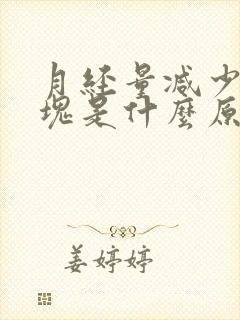 月经量减少
塊是什麼原
姜婷婷